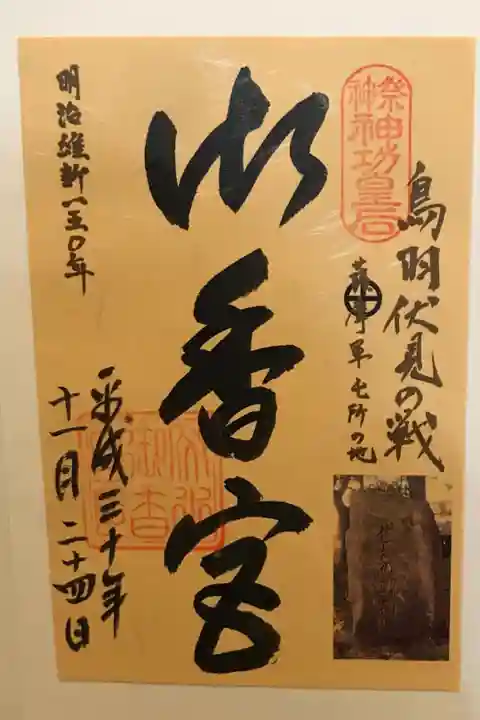 祭神神功皇后
鳥羽伏見の戦
薩摩軍屯所の地
御香宮
平成三十年
十一月二十四日
明治維新一五〇年